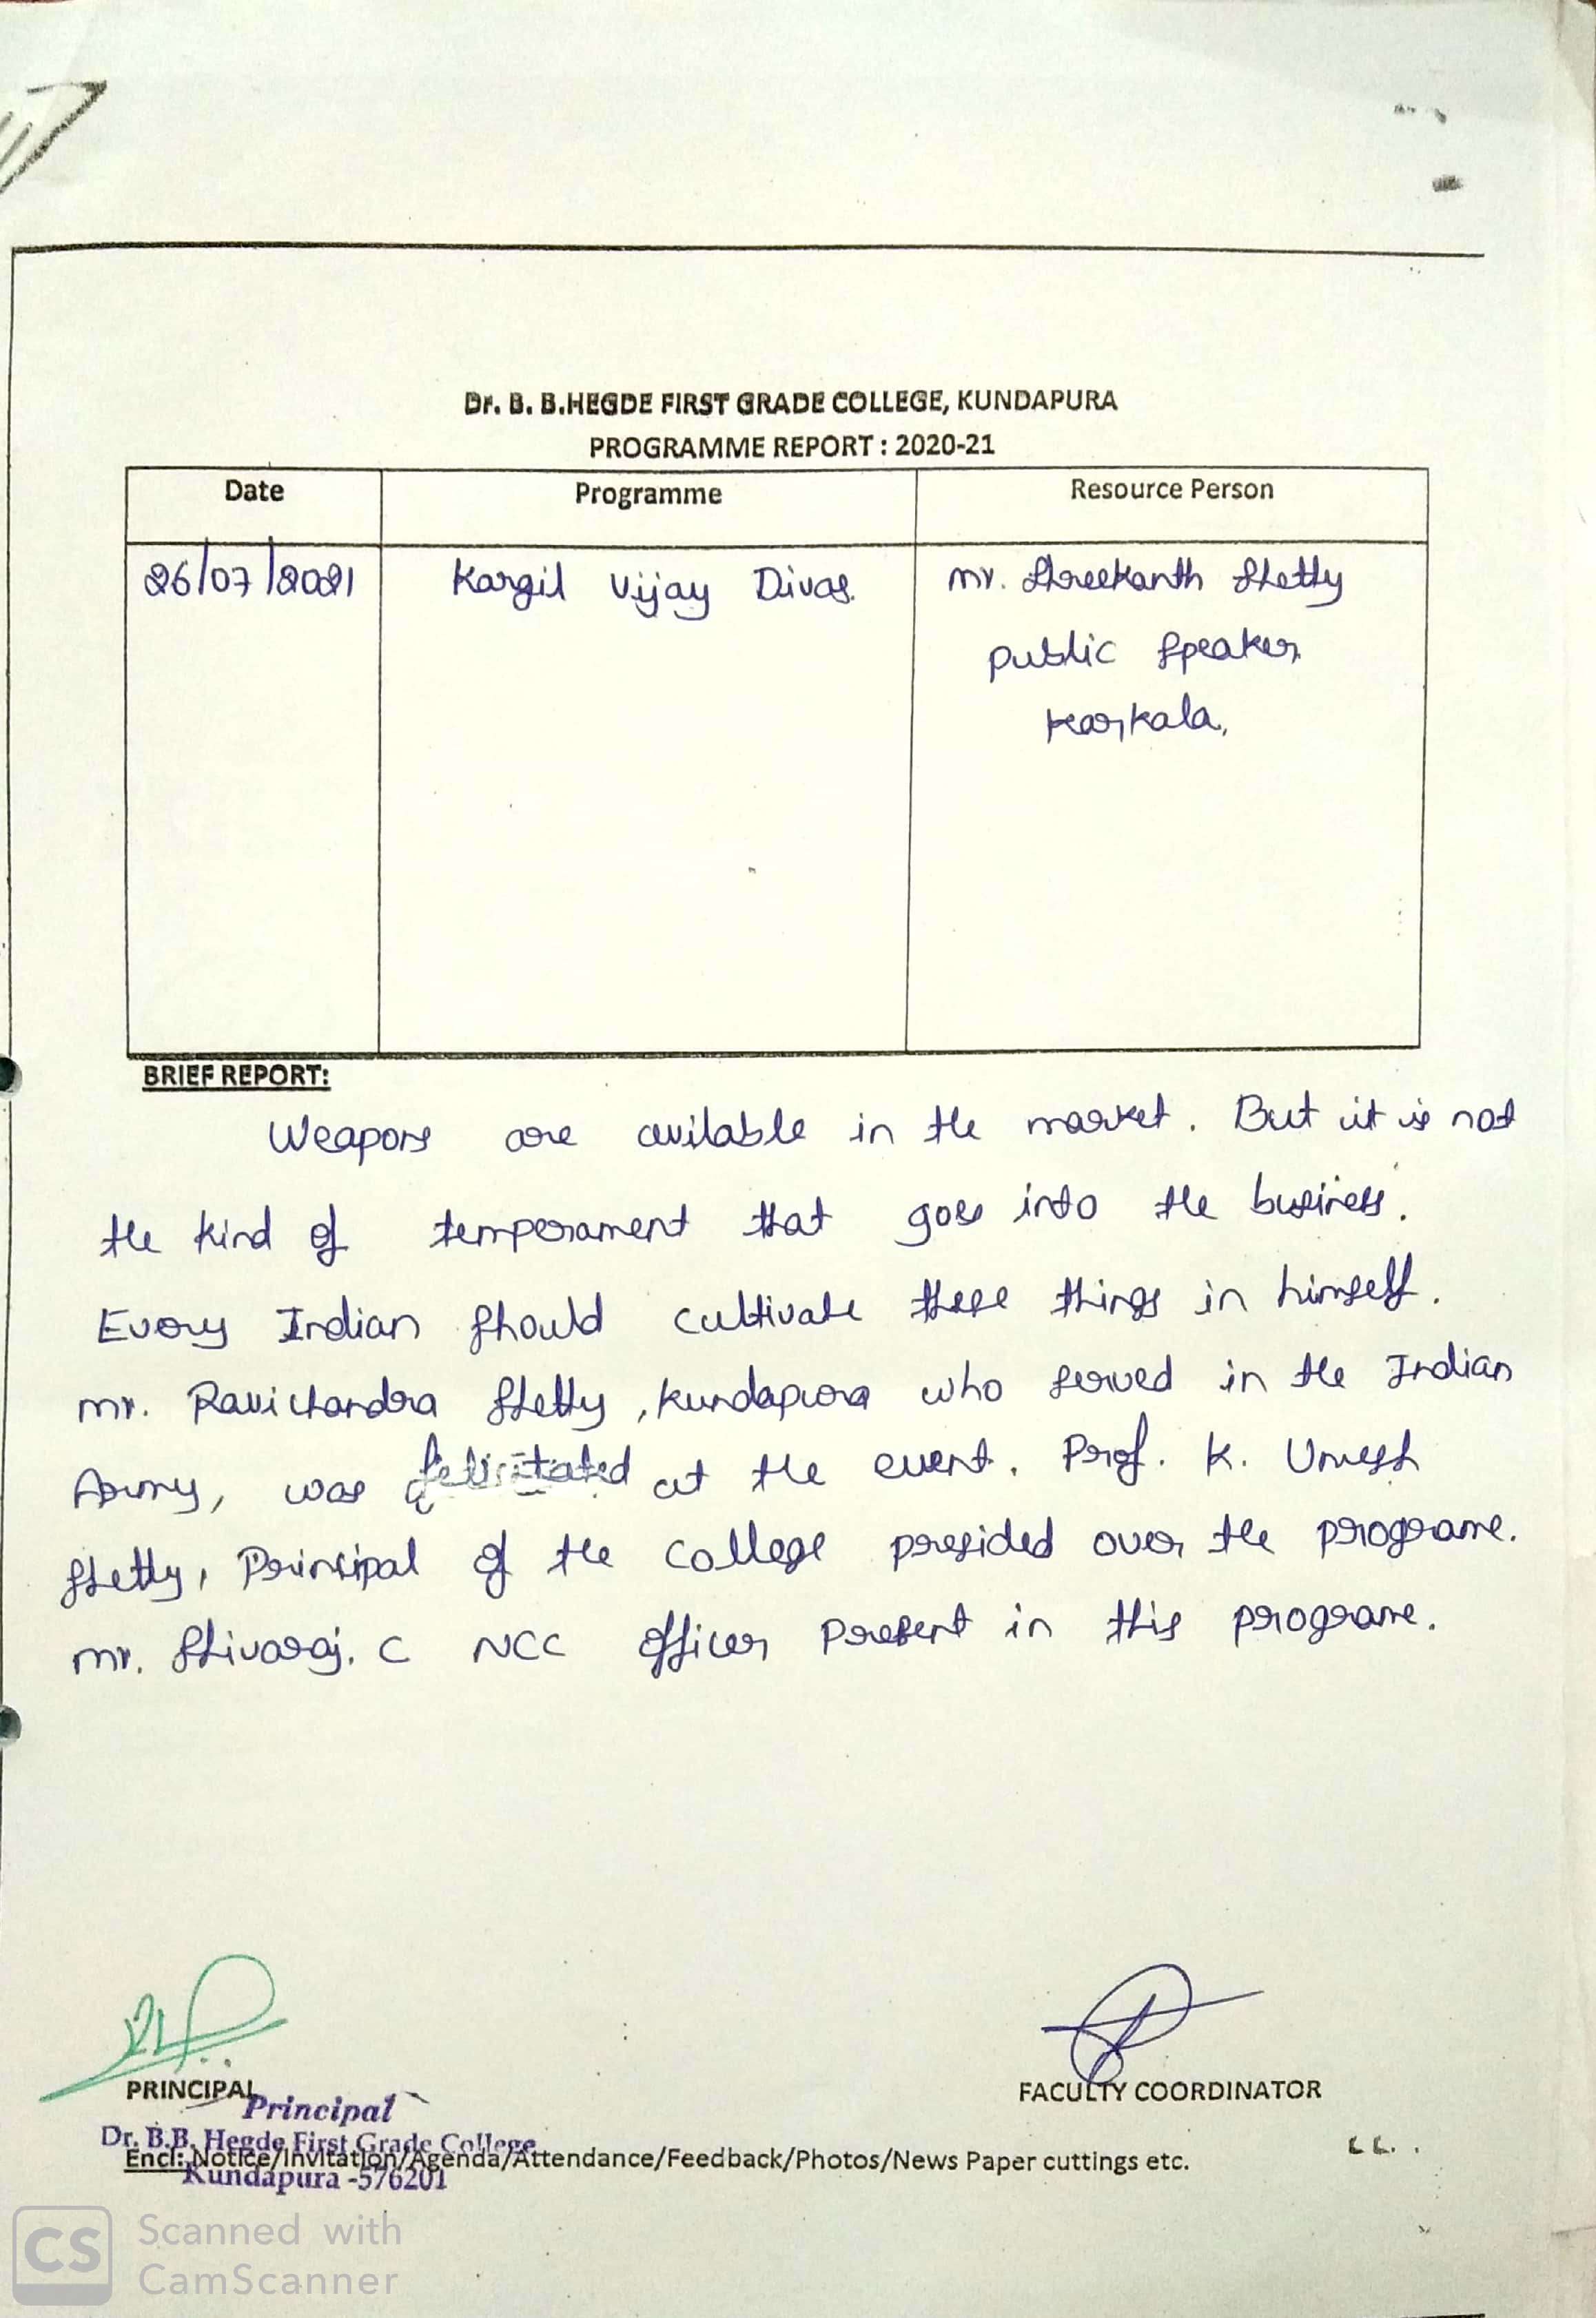 Dr. B. B.HEGDE FIRST GRADE COLLEGE, KUNDAPURA
PROGRAMME REPORT : 2020-21
Date Programme Resource Person
26/07/2021 Kargil Vijay Divas. Mr. Shreekanth Shetty
Public Speaker
Karkala,
BRIEF REPORT:
Weapons are avilable in the market. But it is not
the kind of temperament that goes into the business.
Every Indian should cultivate these things in himself.
Mr. Ravichandra Shetty, Kundapura who served in the Indian
Army, was felicitated at the event. Prof. K. Umesh
Shetty, Principal of the College presided over the programe.
Mr. Shivaraj. C NCC officer present in this programe.
PRINCIPAL FACULTY COORDINATOR
Principal
Dr. B.B. Hegde First Grade College
Encl: Notice/Invitation/Agenda/Attendance/Feedback/Photos/News Paper cuttings etc.
Kundapura -576201
CS Scanned with
CamScanner